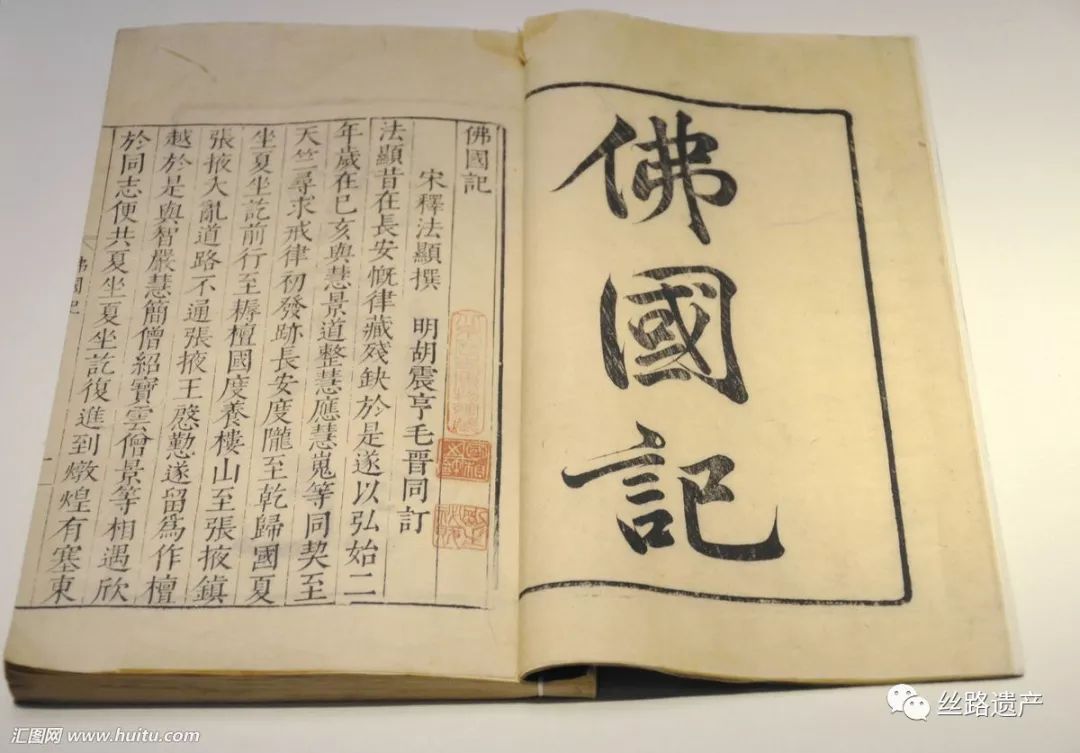 佛國記
佛國記
宋釋法顯撰　明胡震亨毛晋同訂
法顯昔在長安慨律藏殘缺於是遂以弘始二
年歲在巳亥與慧景道整慧應慧嵬等同契至
天竺尋求戒律初發跡長安度隴至乾歸國夏
坐夏坐訖前行至耨檀國度養樓山至張掖鎮
張掖大亂道路不通張掖王慇懃遂留爲作檀
越於是與智嚴慧簡僧紹寶雲僧景等相遇欣
於同志便共夏坐夏坐訖復進到燉煌有塞東
佛國記
丝路遗产
汇图网 www.huitu.com